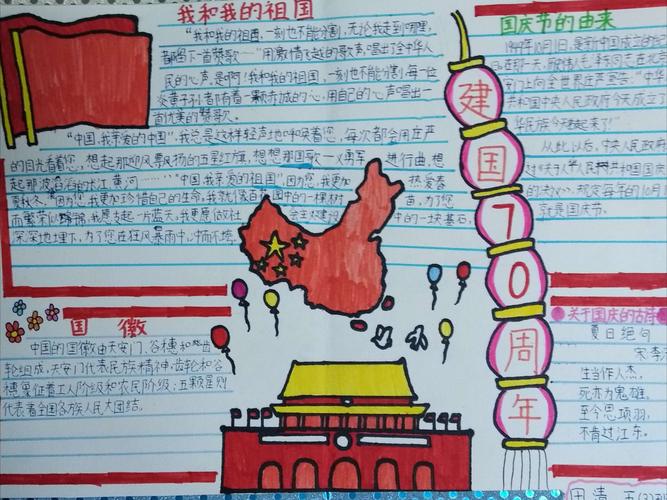 我和我的祖国
"我和我的祖国一刻也不能分割,无论我走到哪里,
都留下一首赞歌……"用激情飞越的歌声,唱出了全中华人
民的心声。是啊!我和我的祖国,一刻也不能分割,每一位
炎黄子孙都有着一颗赤诚的心,用自己的心声唱出一
首优美的赞歌。
"中国,我亲爱的中国",我总是这样轻声地呼唤着您,每次都会用庄严
的目光看着您,想起那迎风飘扬的五星红旗,想想那国歌—义勇军进行曲,想
起那波涛汹涌的长江、黄河……"中国,我亲爱的祖国",因为您,我更加热爱春
夏秋冬,因为您,我更加珍惜自己的生命,我就像百花园中的一棵树苗,为了您,
而繁荣
我愿支起一片蓝天,我更愿做社会主义建设中的一块基石,
深深地埋下,为了您在狂风暴雨中
国徽
中国的国徽由天安门、谷穗和齿
轮组成,天安门代表民族精神,齿轮和谷
穗象征着工人阶级和农民阶级;五颗星则
代表着全国各族人民大团结。
建国70周年
国庆节的由来
1949年10月1日,是新中国成立的
在那一天,
门上向全世界庄严宣告:"中华
共和国中央人民政府今天成立了
华民族今天站起来了!"
从此以后,中央人民政府
规定每年的10月
就是国庆节。
关于国庆的古诗
夏日绝句
宋李
生当作人杰,
死亦为鬼雄。
至今思项羽,
不肯过江东。
田清 五(3)